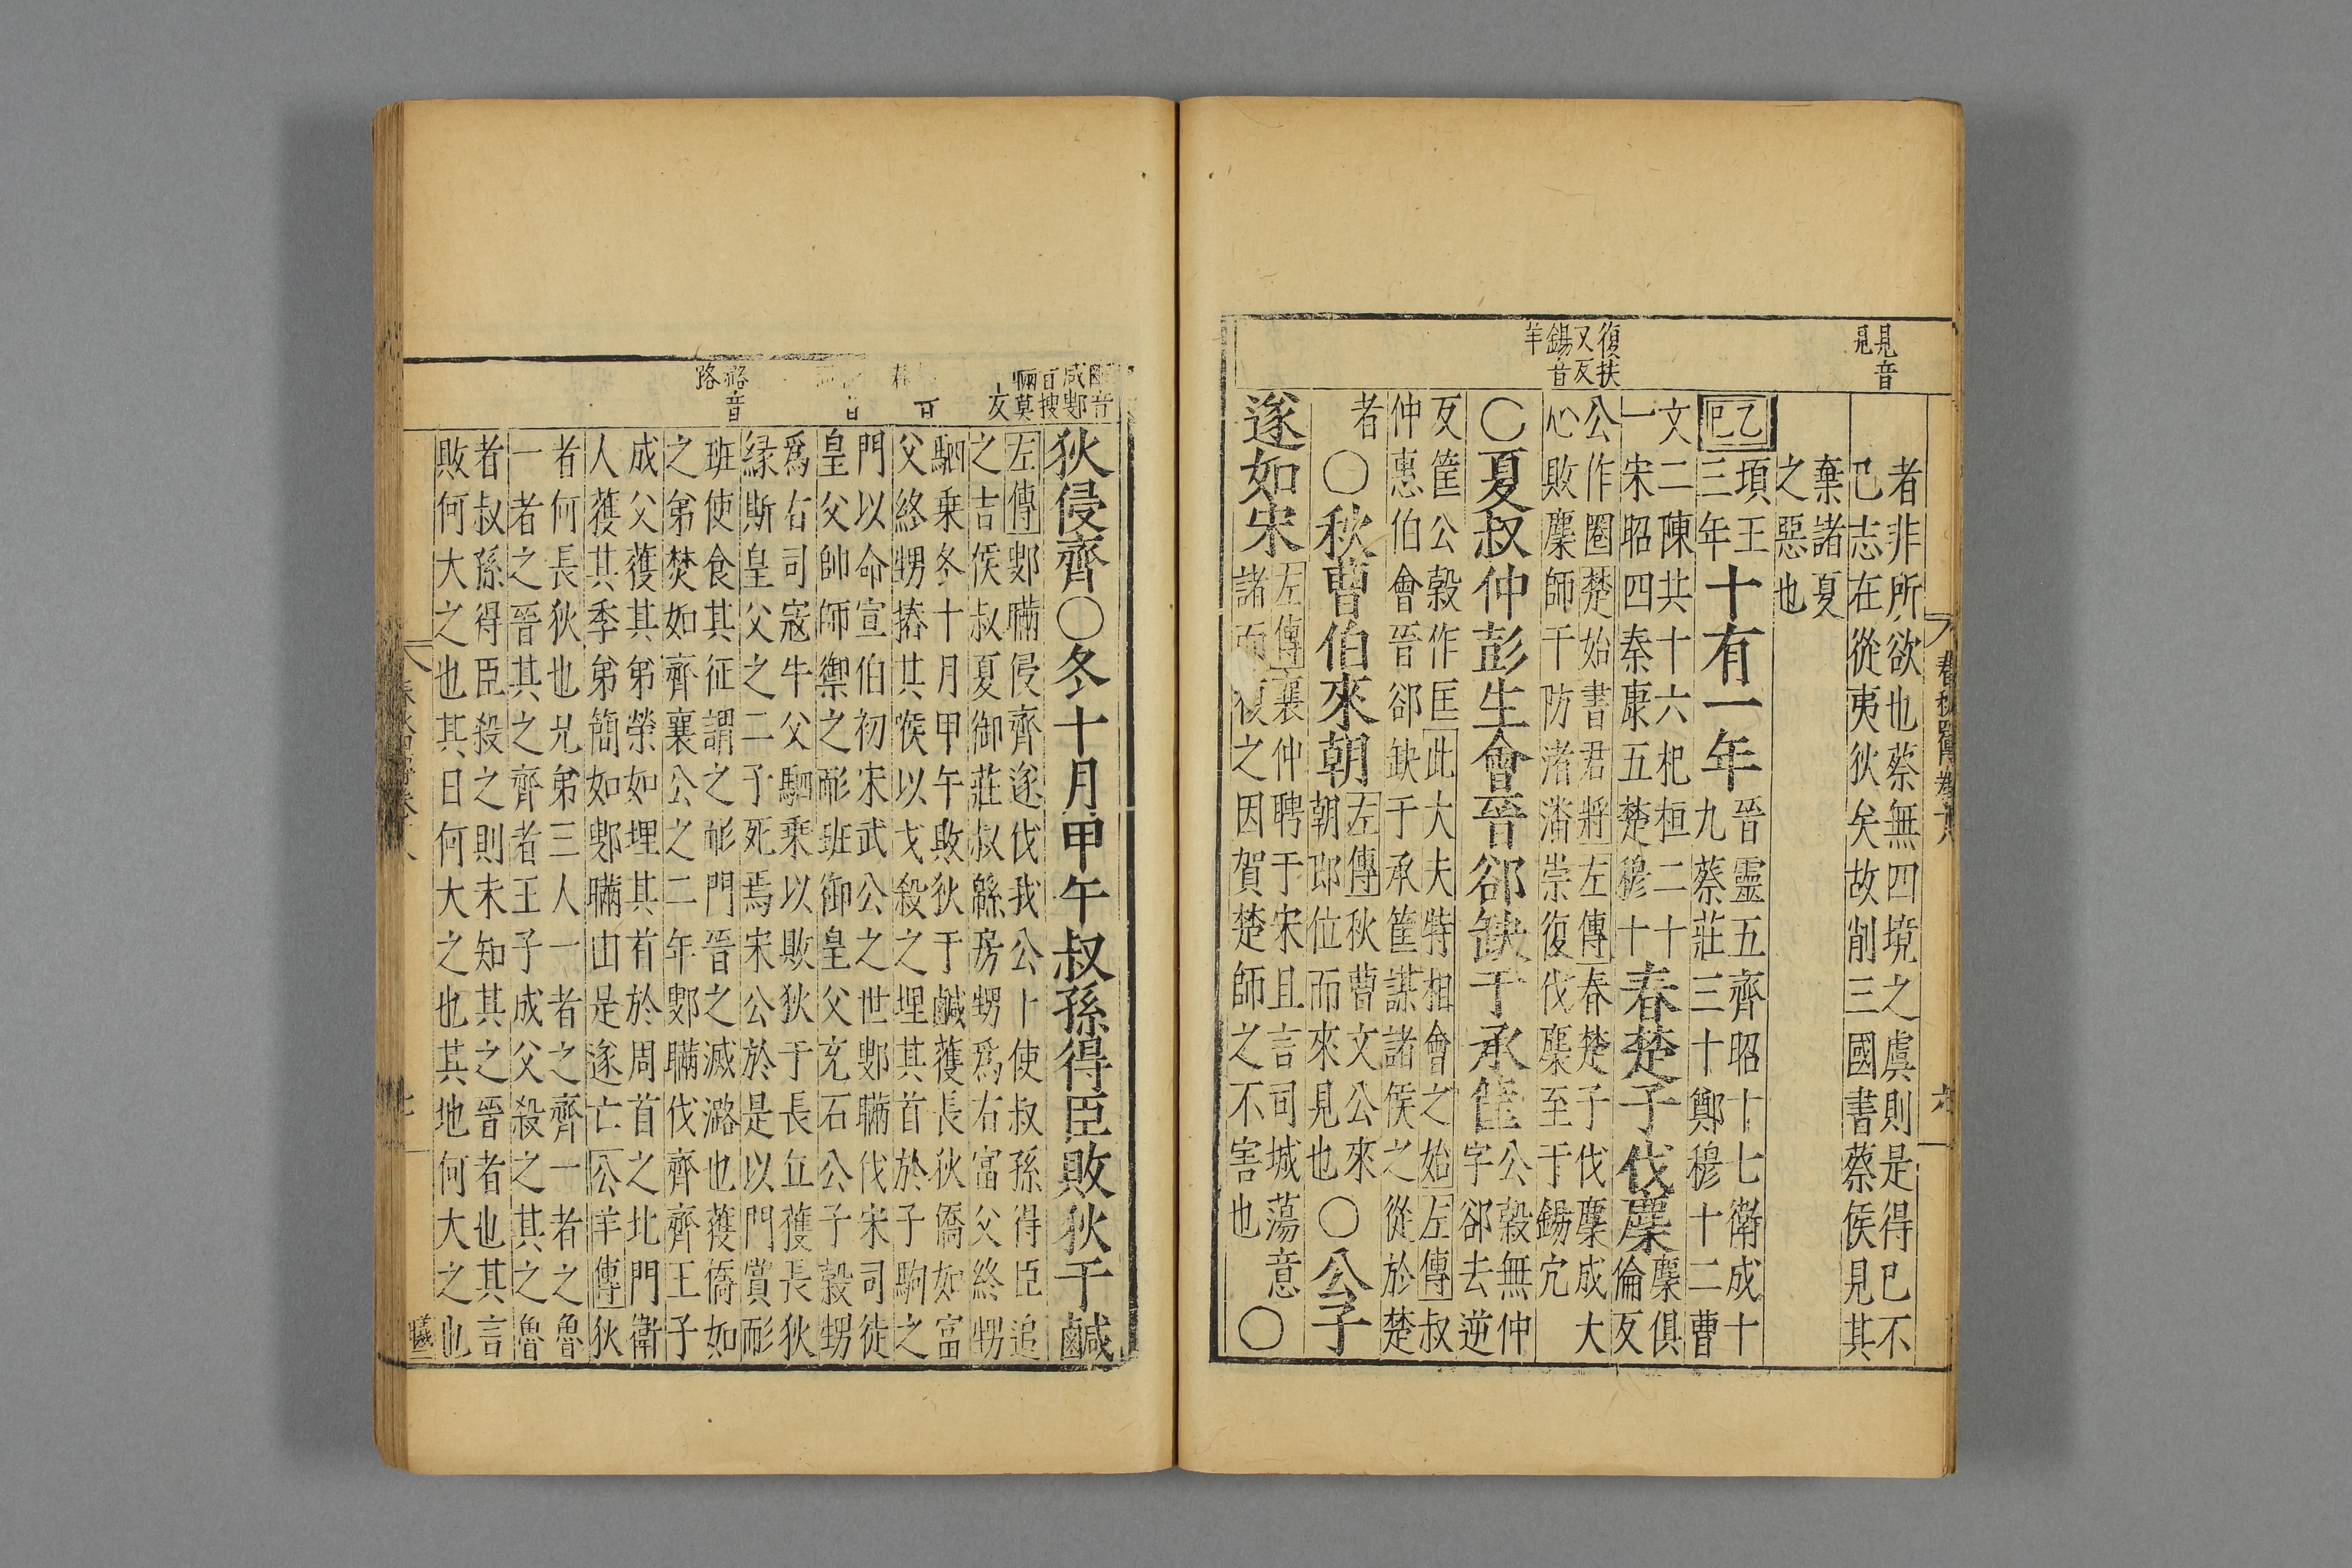 見音
見
復扶
又反
錫音
羊
者非所欲也蔡無四境之虞則是得已不
已志在從夷狄矣故削三國書蔡侯見其
棄諸夏
之惡也
乙巳
頃王
三年
十有一年
晉靈五齊昭十七衛成十
九蔡莊三十鄭穆十二曹
文二陳共十六杞桓二十
一宋昭四秦康五楚穆十
春楚子伐麇
麇俱
倫反
公作圈楚始書君將左傳春楚子伐麇成大
心敗麇師于防渚潘崇復伐麇至于錫穴
○夏叔仲彭生會晉郤缺于承筐
公穀無仲
字郤去逆
反筐公穀作匡此大夫特相會之始左傳叔
仲惠伯會晉郤缺于承筐謀諸侯之從於楚
者
○秋曹伯來朝
左傳秋曹文公來
朝即位而來見也
○公子
遂如宋
左傳襄仲聘于宋且言司城蕩意
諸而復之因賀楚師之不害也
○
春秋四傳卷六
鹹音
咸鄋
瞞莫
潞音
路
狄侵齊○冬十月甲午叔孫得臣敗狄于鹹
左傳鄋瞞侵齊遂伐我公卜使叔孫得臣追
之吉侯叔夏御莊叔緜房甥爲右富父終甥
駟乗冬十月甲午敗狄于鹹獲長狄僑如富
父終甥摏其喉以戈殺之埋其首於子駒之
門以命宣伯初宋武公之世鄋瞞伐宋司徒
皇父帥師禦之耏班御皇父充石公子穀甥
爲右司寇牛父駟乗以敗狄于長丘獲長狄
緣斯皇父之二子死焉宋公於是以門賞耏
班使食其征謂之耏門晉之滅潞也獲僑如
之弟焚如齊襄公之二年鄋瞞伐齊齊王子
成父獲其弟榮如埋其首於周首之北門衛
人獲其季弟簡如鄋瞞由是遂亡公羊傳狄
者何長狄也兄弟三人一者之齊一者之魯
一者之晉其之齊者王子成父殺之其之魯
者叔孫得臣殺之則未知其之晉者也其言
敗何大之也其日何大之也其地何大之也